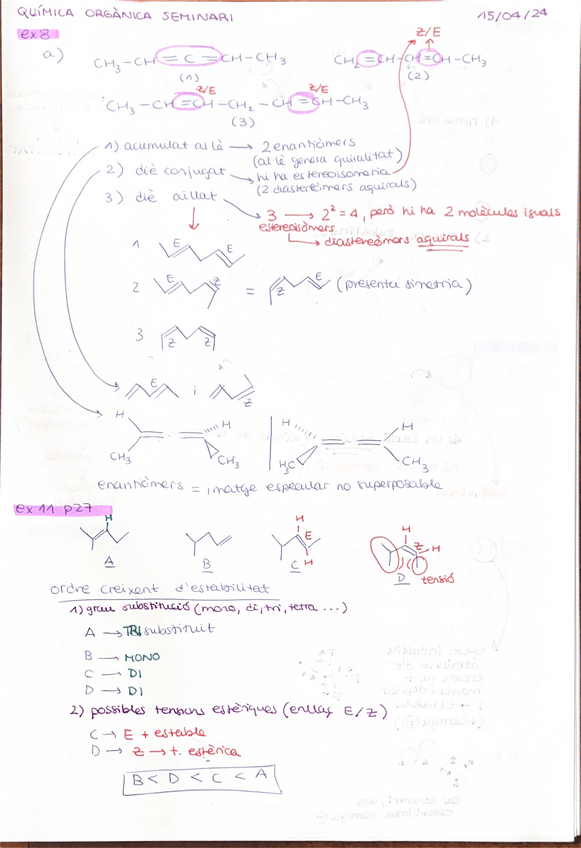 QUÍMICA ORGÀNICA SEMINARI 15/04/24
ex 8
a) CH₃-CH=C=CH-CH₃
(1)
Z/E
CH₂=CH-CH=CH-CH₃
(2)
Z/E Z/E
CH₃-CH=CH-CH₂-CH=CH-CH₃
(3)
1) acumulat al·lè → 2 enantiòmers
(al·lè genera quiralitat)
2) diè conjugat → hi ha estereoisomeria
(2 diastereòmers aquirals)
3) diè aïllat
3 → 2² = 4, però hi ha 2 molècules iguals
estereoisòmers
→ diastereòmers aquirals
1 E E
2 E Z = Z E (presenta simetria)
3 Z Z
E i Z
H H H H
CH₃ CH₃ H₃C CH₃
enantiòmers = imatge especular no superposable
ex 11 p27
H H E H H Z H
A B C D tensió
ordre creixent d'estabilitat
1) grau substitució (mono, di, tri, tetra ...)
A → TRI substituït
B → MONO
C → DI
D → DI
2) possibles tensions estèriques (enllaç E/Z)
C → E + estable
D → Z → t. estèrica
B < D < C < A